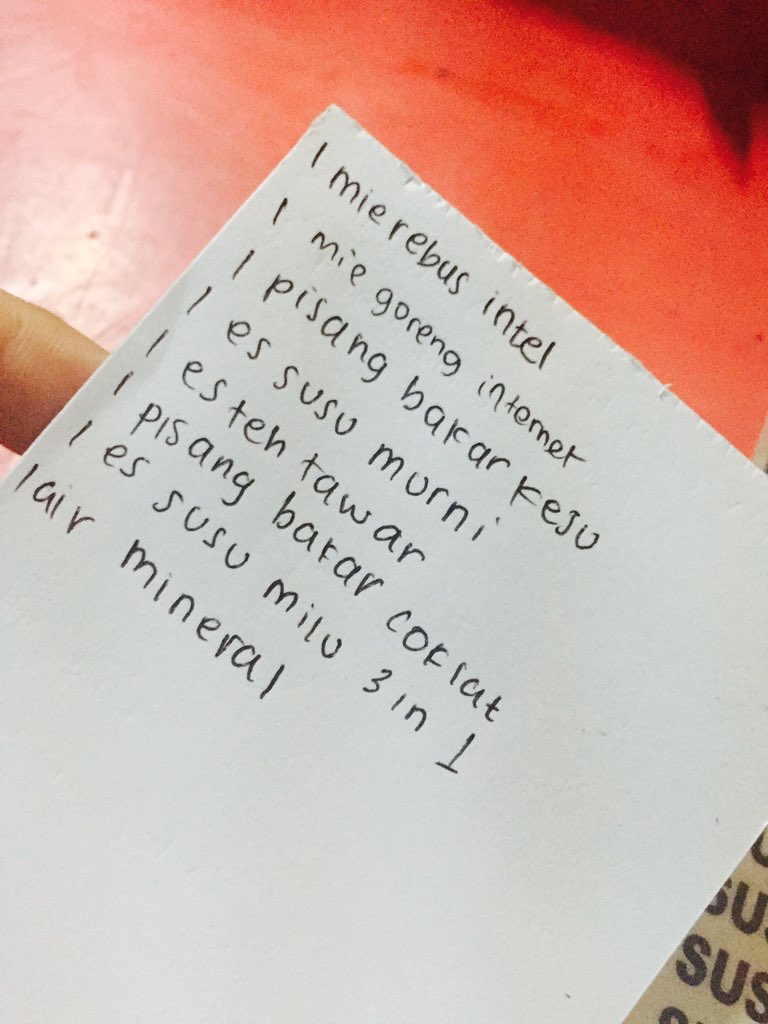 1 mie rebus intel
1 mie goreng internet
1 pisang bakar keju
1 es susu murni
1 es teh tawar
1 pisang bakar coklat
1 es susu milo 3 in 1
1 air mineral
SUS
SUS